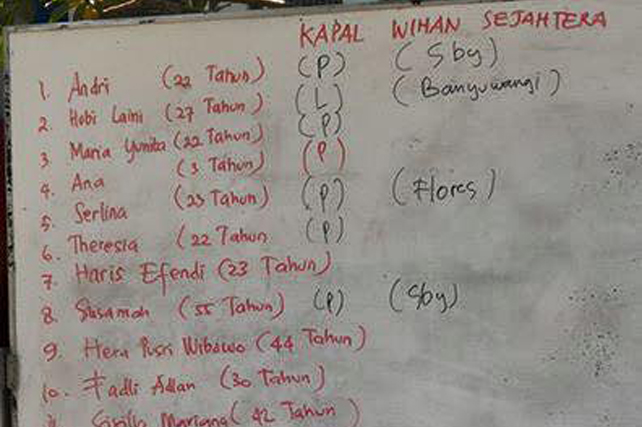 KAPAL WIHAN SEJAHTERA
1. Andri (22 Tahun) (P) (Sby)
2. Hobi Laini (27 Tahun) (L) (Banyuwangi)
3. Maria Yunita (22 Tahun) (P)
4. Ana (3 Tahun) (P)
5. Serlina (23 Tahun) (P) (Flores)
6. Theresia (22 Tahun (P)
7. Haris Efendi (23 Tahun)
8. Susamah (55 Tahun) (P) (Sby)
9. Heru Pusri Wibowo (44 Tahun)
10. Fadli Adlan (30 Tahun)
Mariana (42 Tahun)